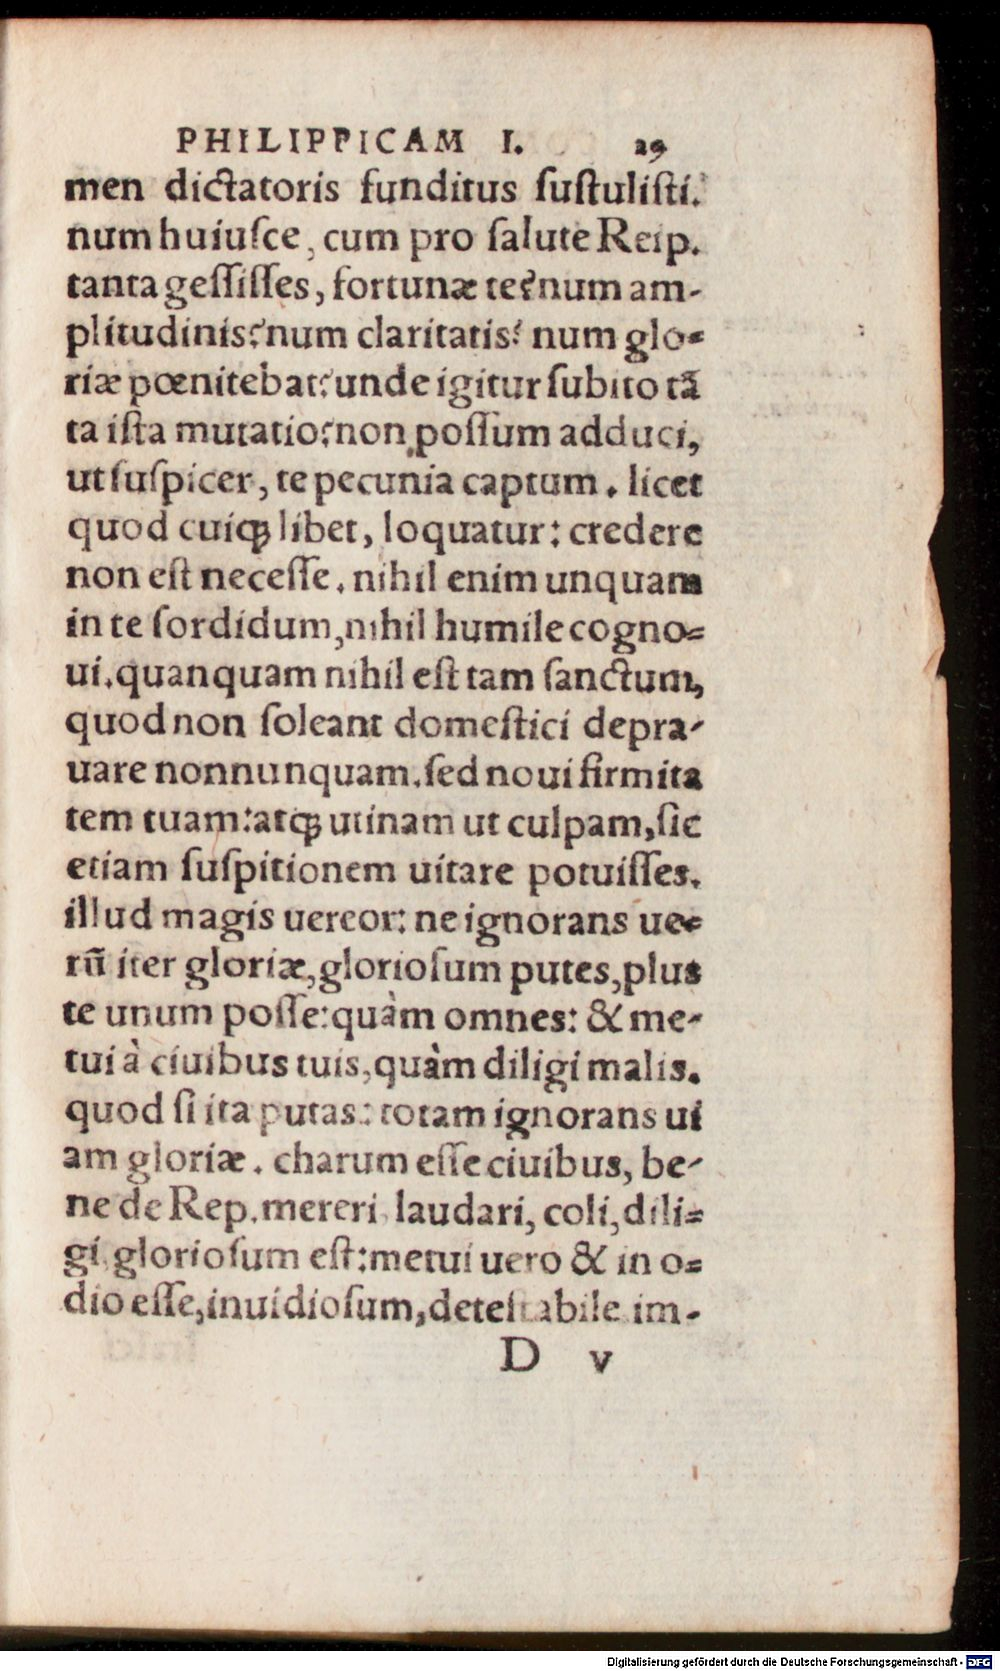 PHILIPPICAM I. 29
men dictatoris funditus ſuſtuliſti.
num huiuſce, cum pro ſalute Reip.
tanta geſſiſſes, fortunæ te? num am-
plitudinis? num claritatis? num glo-
riæ pœnitebat? unde igitur ſubito tã
ta iſta mutatio? non poſſum adduci,
ut ſuſpicer, te pecunia captum. licet
quod cuiqꝫ libet, loquatur: credere
non eſt neceſſe. nihil enim unquam
in te ſordidum, nihil humile cogno-
ui. quanquam nihil eſt tam ſanctum,
quod non ſoleant domeſtici depra-
uare nonnunquam. ſed noui firmita
tem tuam: atqꝫ utinam ut culpam, ſic
etiam ſuſpitionem uitare potuiſſes.
illud magis uereor: ne ignorans ue-
rũ iter gloriæ, glorioſum putes, plus
te unum poſſe: quàm omnes: & me-
tui à ciuibus tuis, quàm diligi malis.
quod ſi ita putas: totam ignorans ui
am gloriæ. charum eſſe ciuibus, be-
ne de Rep. mereri laudari, coli, dili-
gi glorioſum eſt: metui uero & in o-
dio eſſe, inuidioſum, deteſtabile im-
D v
Digitalisierung gefördert durch die Deutsche Forschungsgemeinschaft - DFG